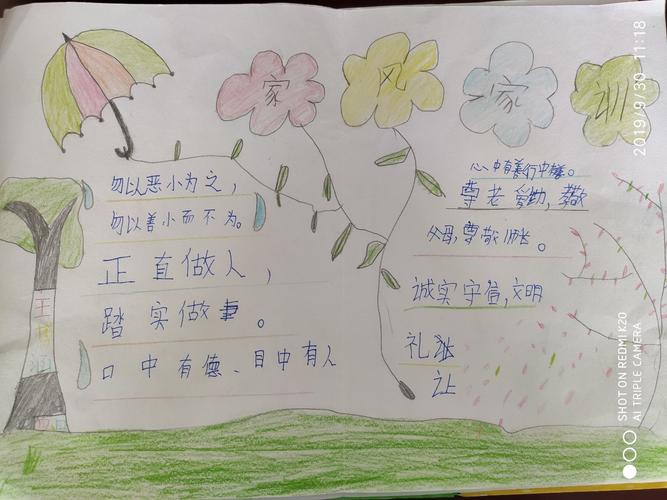 家风家训
勿以恶小为之，
勿以善小而不为。
正直做人，
踏实做事。
口中有德、目中有人
心中有善行中
尊老爱幼，孝敬
父母，尊敬师长。
诚实守信，文明
礼
让
王
2019/9/30 11:18
SHOT ON REDMI K20
AI TRIPLE CAMERA